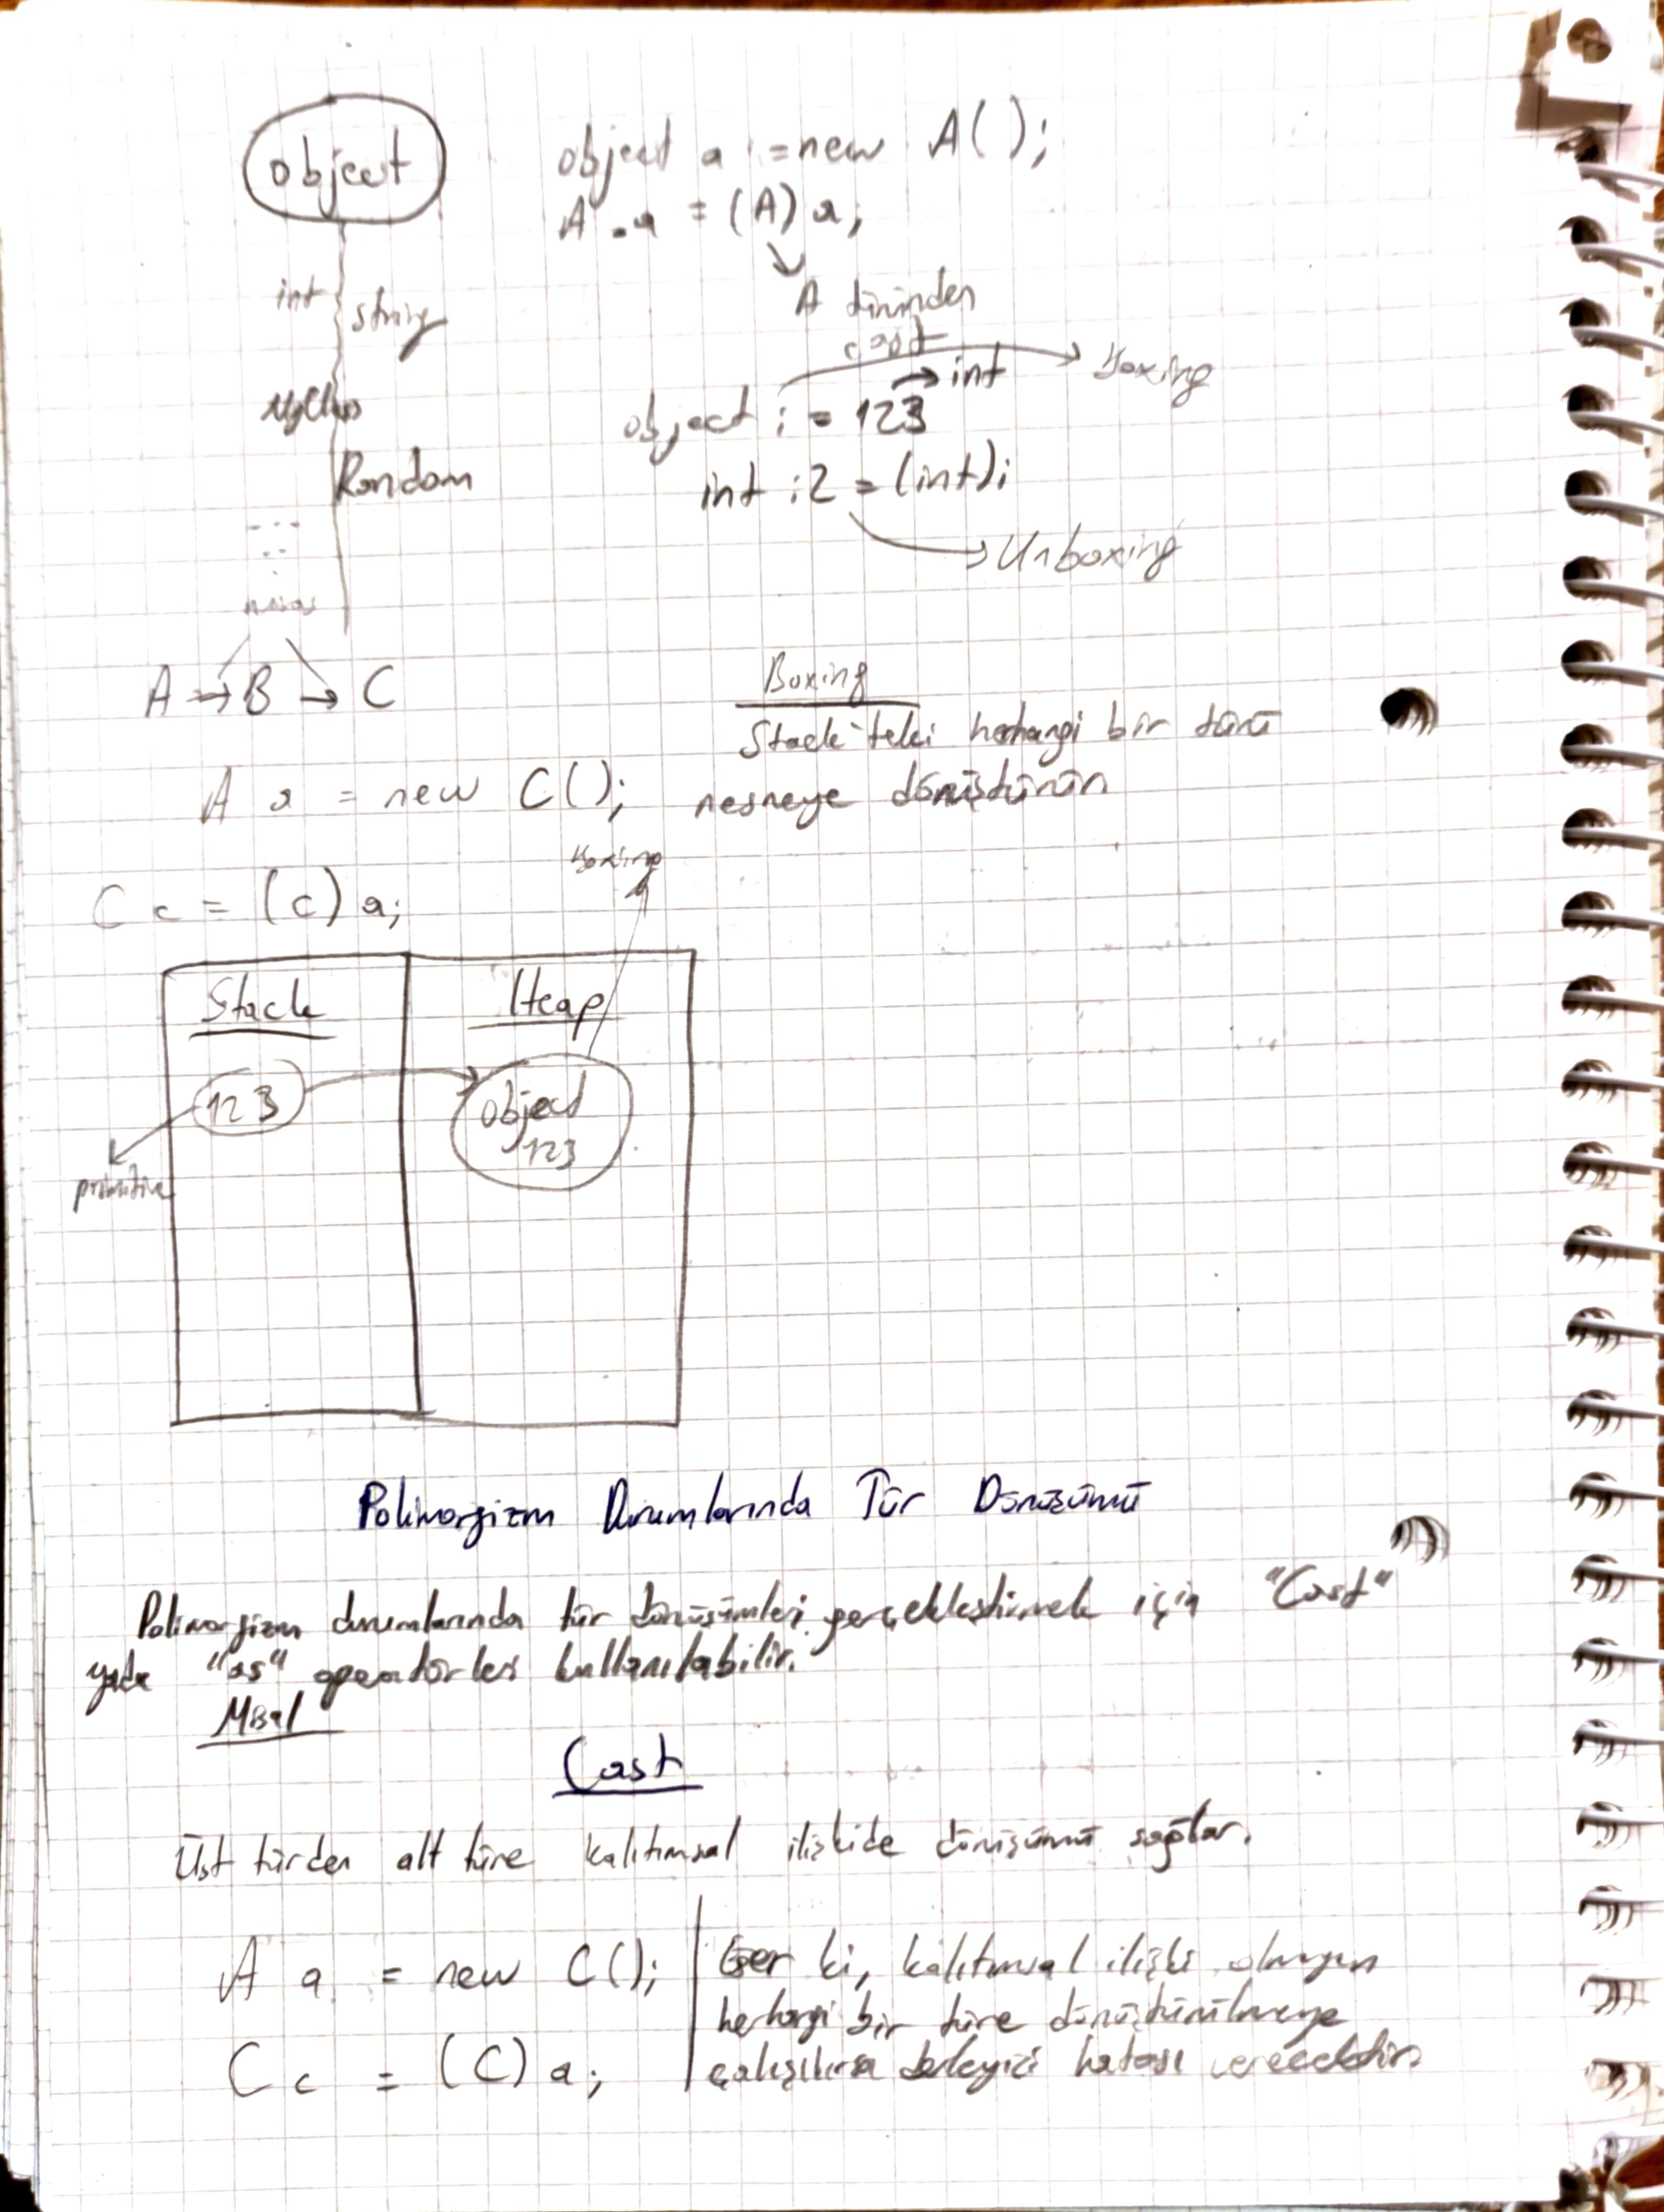 object
object a = new A();
A a = (A) a;
A türünden
cast
int
string
Boxing
int
object i = 123
MyClass
Random
int i2 = (int)i
Unboxing
A → B → C
Boxing
Stack'teki herhangi bir türü
nesneye dönüştürür
A a = new C();
Boxing
C c = (C) a;
Stack
Heap
123
object
123
primitive
Polimorfizm Durumlarında Tür Dönüşümü
Polimorfizm durumlarında tür dönüşümleri gerçekleştirmek için "Cast"
yada "as" operatörleri kullanılabilir.
Misal
Cast
Üst türden alt türe kalıtımsal ilişkide dönüşümü sağlar.
A a = new C();
Eğer ki, kalıtımsal ilişki olmayan
herhangi bir türe dönüştürülmeye
C c = (C) a;
çalışılırsa derleyici hatası verecektir.